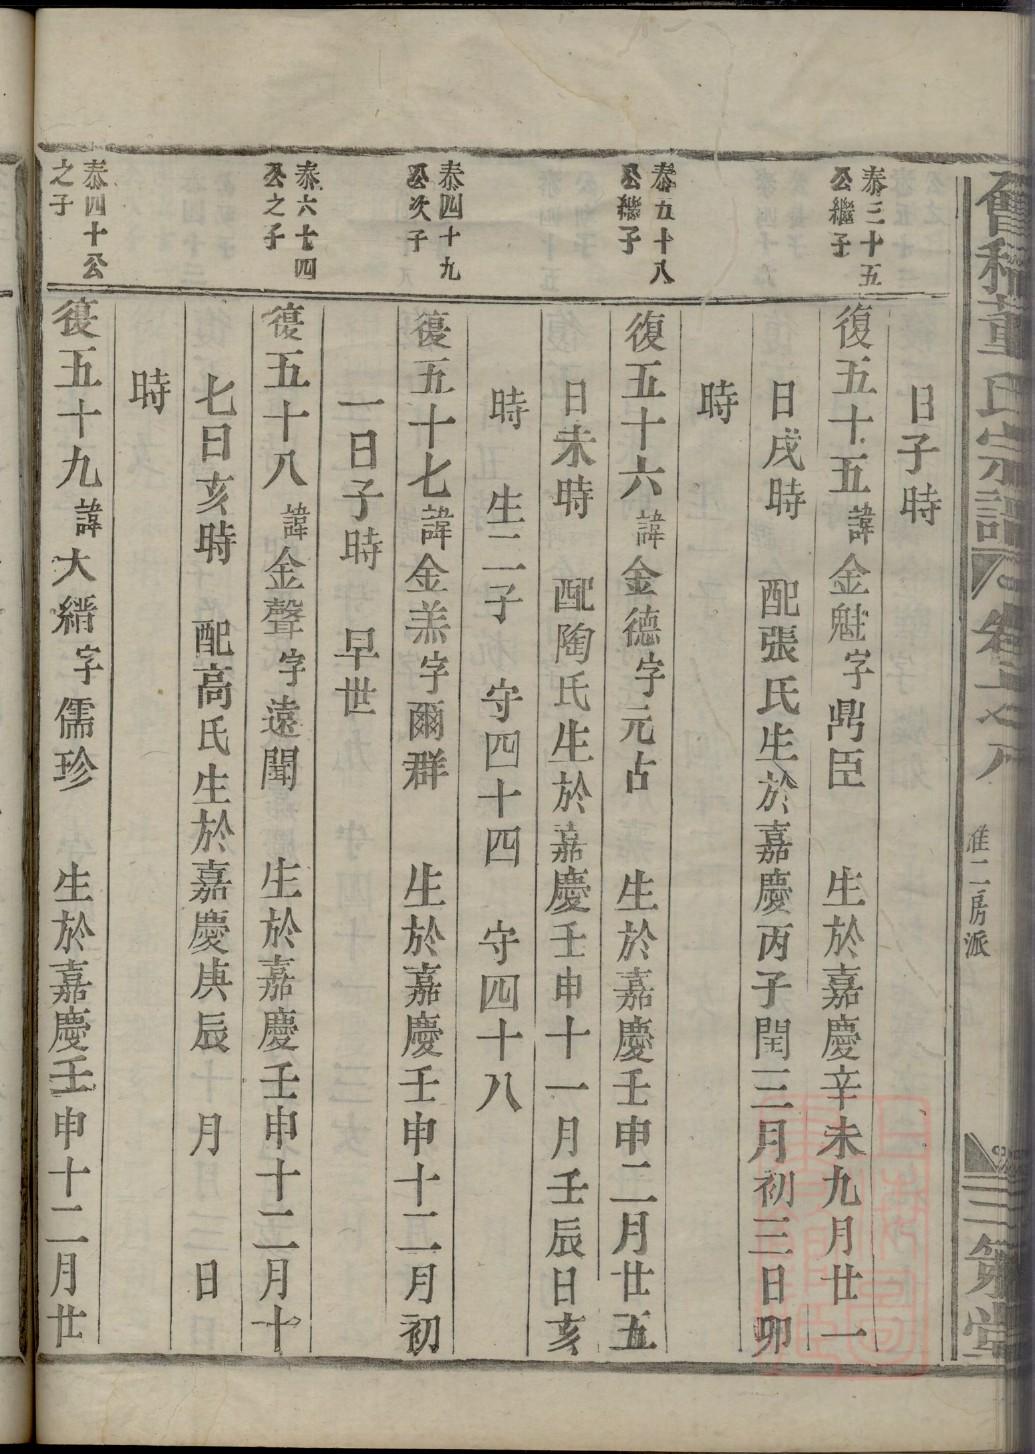 會稽董氏宗譜
卷十八
淮二房派
三策堂
日子時
泰三十五
公繼子
復五十五諱金魁字鼎臣　生於嘉慶辛未九月廿一
日戌時　配張氏生於嘉慶丙子閏三月初三日卯
時
泰五十八
公繼子
復五十六諱金德字元占　生於嘉慶壬申二月廿五
日未時　配陶氏生於嘉慶壬申十一月壬辰日亥
時　生二子　守四十四　守四十八
泰四十九
公次子
復五十七諱金羔字爾群　生於嘉慶壬申十二月初
一日子時　早世
泰六十四
公之子
復五十八諱金聲字遠聞　生於嘉慶壬申十二月十
七日亥時　配高氏生於嘉慶庚辰　月　日
時
泰四十公
之子
復五十九諱大縉字儒珍　生於嘉慶壬申十二月廿